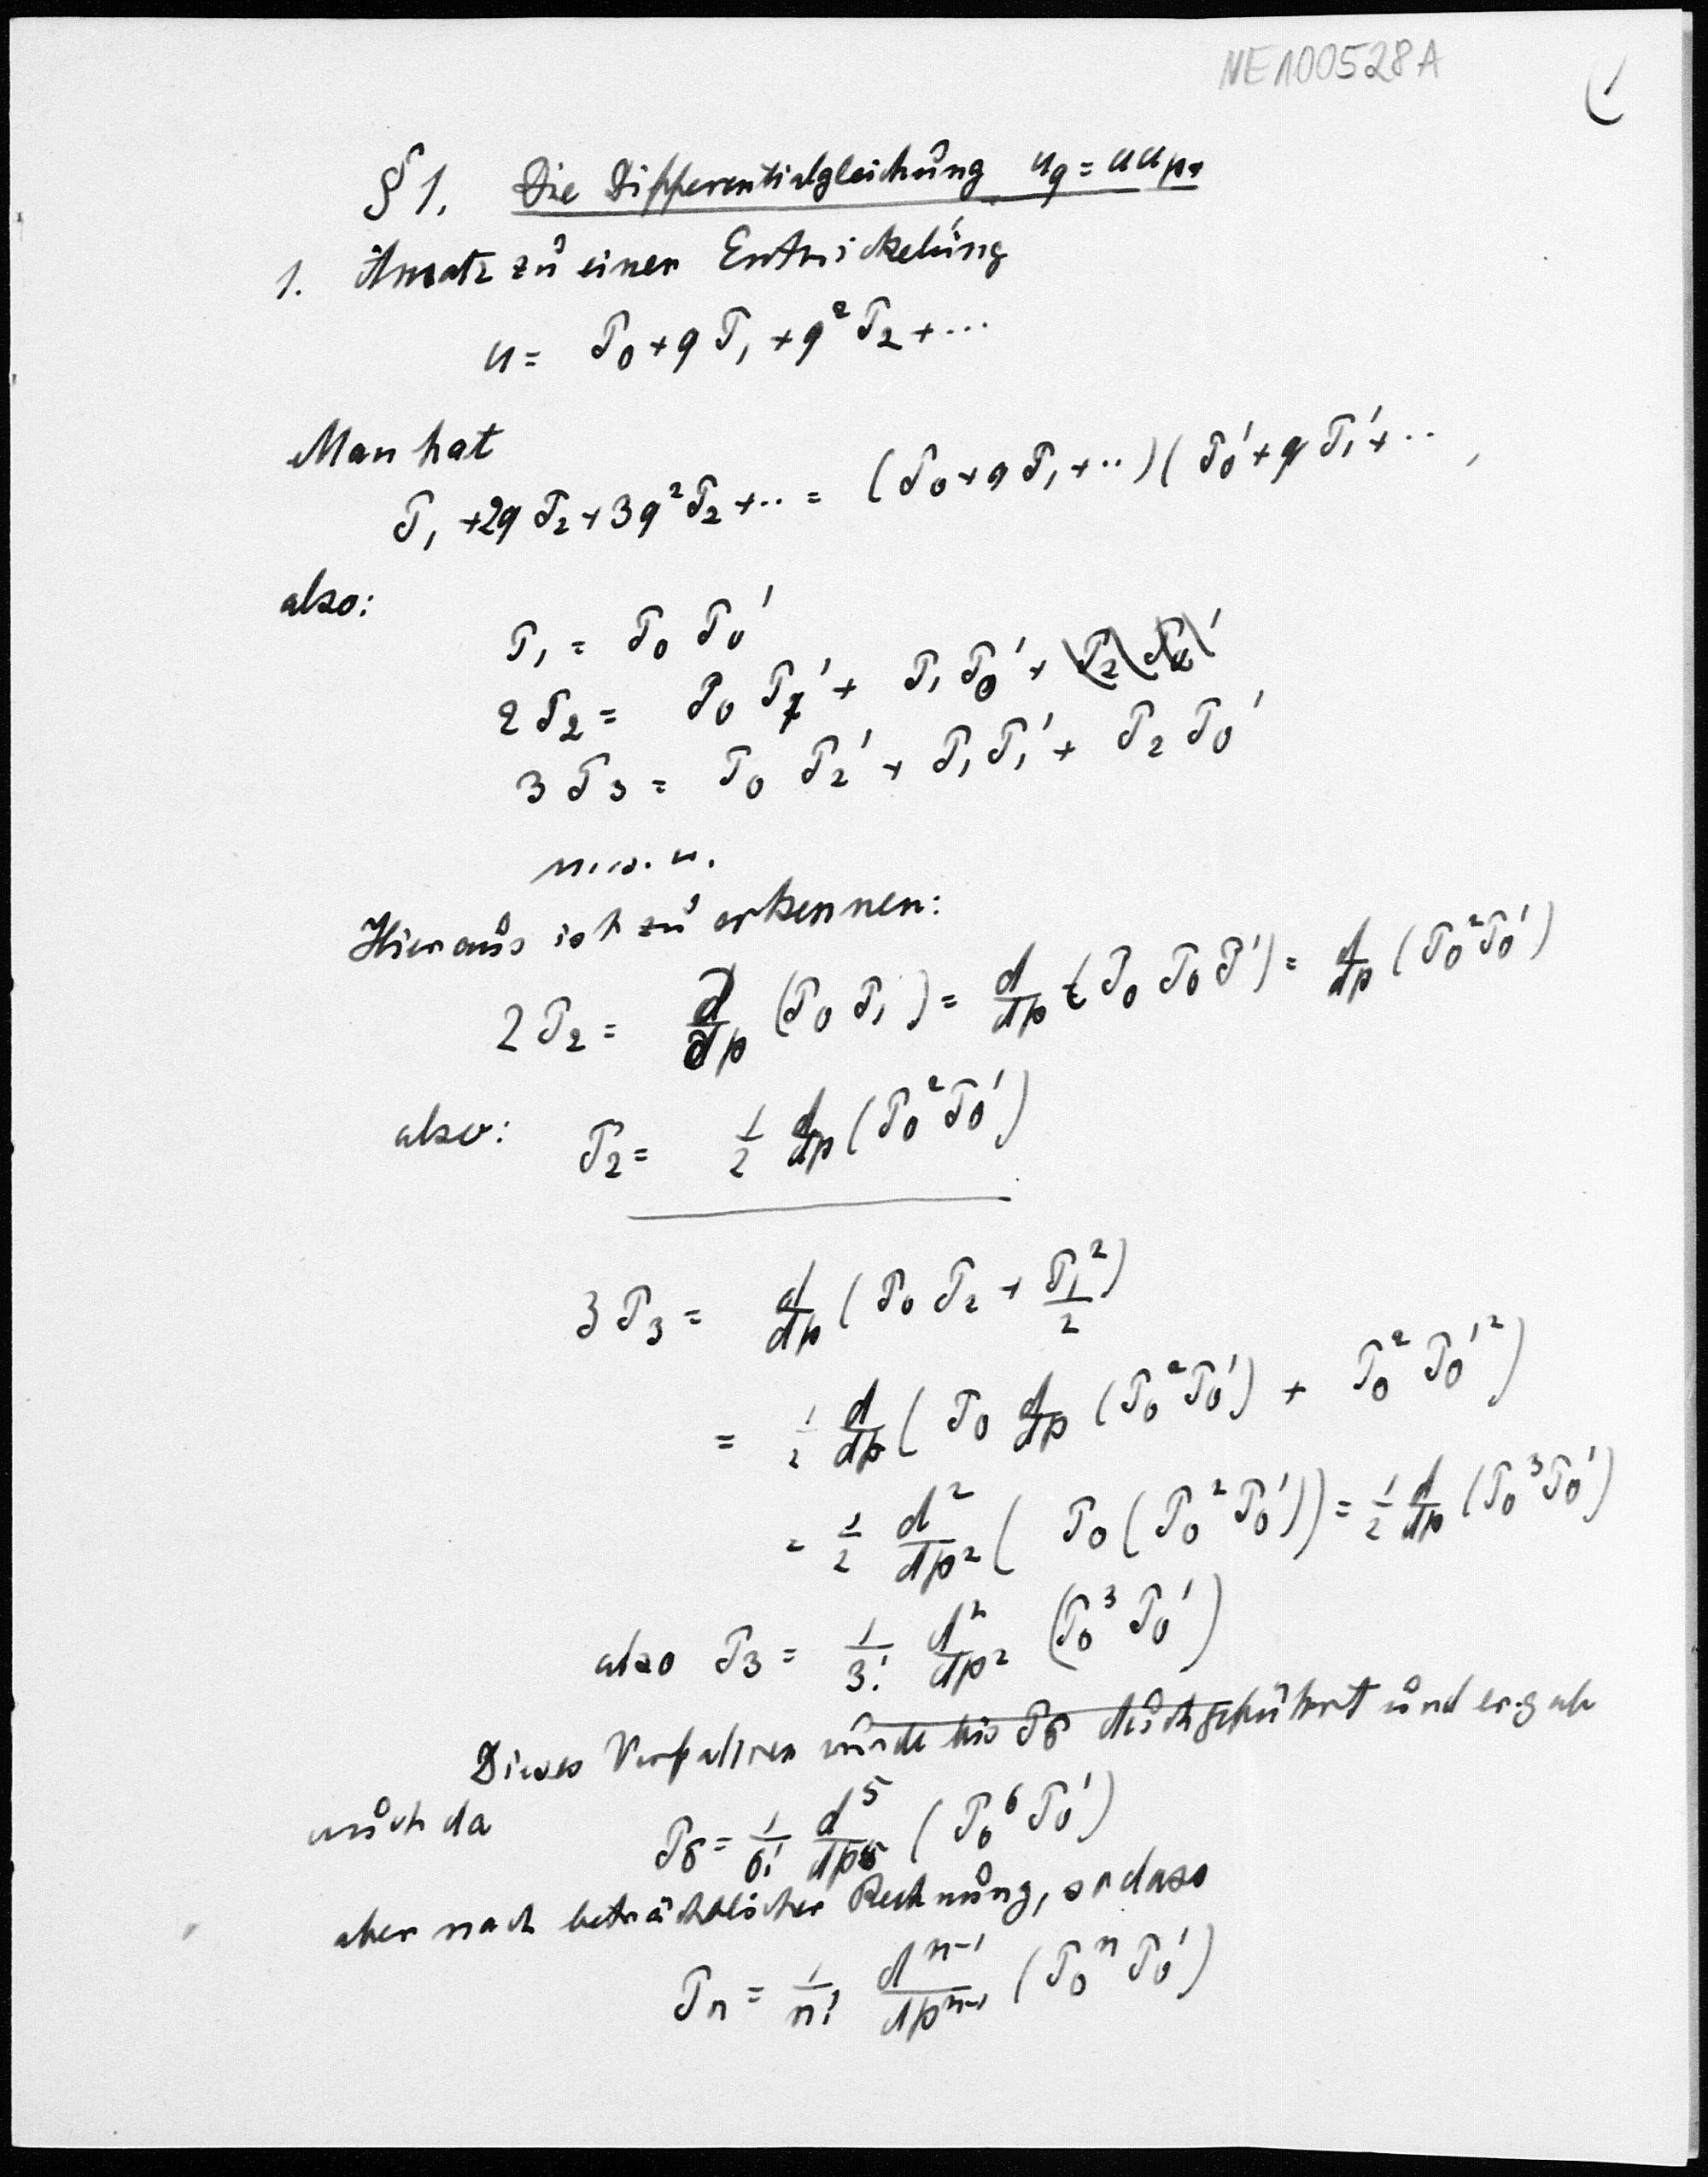 NE100528A
1
§ 1. Die Differentialgleichung u_q = u u_p.
1. Ansatz zu einer Entwickelung
u = T_0 + q T_1 + q² T_2 + ...
Man hat
T_1 + 2q T_2 + 3q² T_2 + .. = (T_0 + q T_1 + ..) ( T_0' + q T_1' + .. ,
also:
T_1 = T_0 T_0'
2 T_2 = T_0 T_1' + T_1 T_0' +
3 T_3 = T_0 T_2' + T_1 T_1' + T_2 T_0'
u.s.w.
Hieraus ist zu erkennen:
2 T_2 = d/dp (T_0 T_1) = d/dp (T_0 T_0 T') = d/dp (T_0² T_0')
also: T_2 = 1/2 d/dp (T_0² T_0')
3 T_3 = d/dp ( T_0 T_2 + T_1²/2 )
= 1/2 d/dp ( T_0 d/dp (T_0² T_0') + T_0² T_0'² )
= 1/2 d²/dp² ( T_0 ( T_0² T_0')) = 1/2 d/dp (T_0³ T_0')
also T_3 = 1/3! d²/dp² (T_0³ T_0')
Dieses Verfahren wurde bis T_6 durchgeführt und ergab
auch da T_6 = 1/6! d⁵/dp⁵ ( T_0⁶ T_0')
aber nach beträchtlicher Rechnung, so dass
T_n = 1/n! d^{n-1}/dp^{n-1} ( T_0^n T_0')